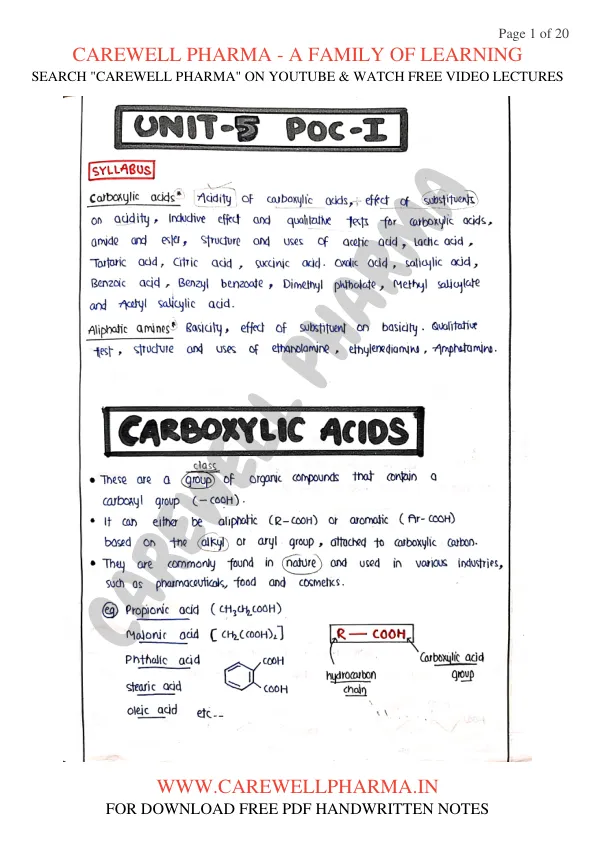 Page 1 of 20
CAREWELL PHARMA - A FAMILY OF LEARNING
SEARCH "CAREWELL PHARMA" ON YOUTUBE & WATCH FREE VIDEO LECTURES
UNIT-5 POC-I
SYLLABUS
Carboxylic acids* Acidity of carboxylic acids, effect of substituents
on acidity, Inductive effect and qualitative tests for carboxylic acids,
amide and ester, structure and uses of acetic acid, Lactic acid,
Tartaric acid, Citric acid, succinic acid. Oxalic acid, salicylic acid,
Benzoic acid, Benzyl benzoate, Dimethyl phthalate, Methyl salicylate
and Acetyl salicylic acid.
Aliphatic amines* Basicity, effect of substituent on basicity. Qualitative
test, structure and uses of ethanolamine, ethylenediamine, Amphetamine.
CARBOXYLIC ACIDS
class
• These are a group of organic compounds that contain a
carboxyl group (-COOH).
• It can either be aliphatic (R-COOH) or aromatic (Ar-COOH)
based on the alkyl or aryl group, attached to carboxylic carbon.
• They are commonly found in nature and used in various industries,
such as pharmaceuticals, food and cosmetics.
eg Propionic acid (CH3CH2COOH)
Malonic acid [CH2(COOH)2]
R — COOH
Phthalic acid
COOH
COOH
Carboxylic acid
group
hydrocarbon
chain
stearic acid
oleic acid etc--
CAREWELL PHARMA
WWW.CAREWELLPHARMA.IN
FOR DOWNLOAD FREE PDF HANDWRITTEN NOTES